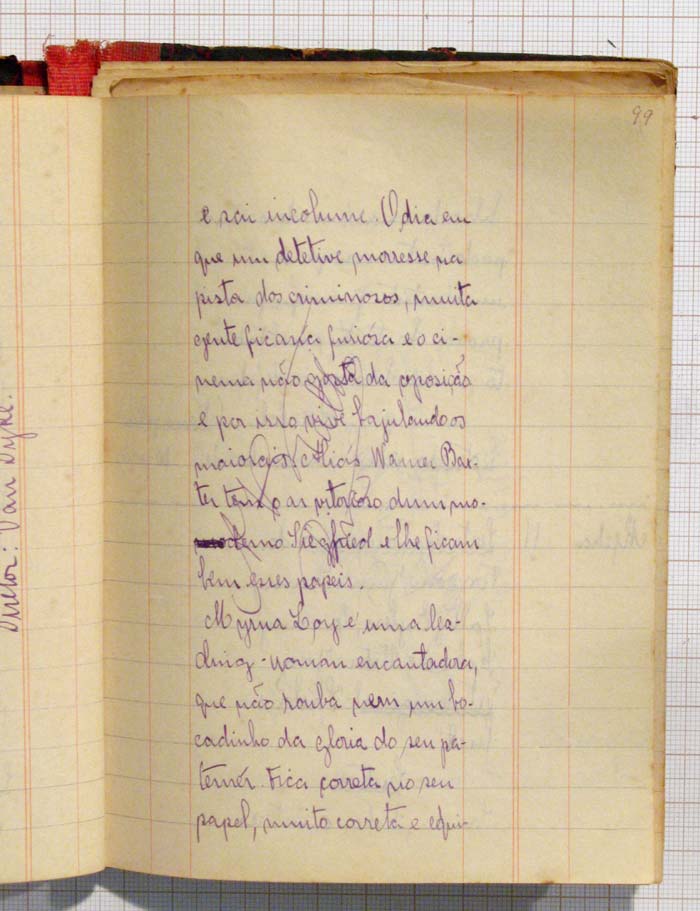 99
e sai incolume. O dia em
que um detetive morresse na
pista dos criminosos, muita
gente ficaria furiosa e o ci-
nema não gosta da oposição
e por isso vive bajulando os
maiorais. Aliás Warner Bax-
ter tem o ar vitorioso dum mo-
derno Siegfried e lhe ficam
bem esses papeis.
Myrna Loy é uma lea-
ding-woman encantadora,
que não rouba nem um bo-
cadinho da gloria do seu pa-
tenér. Fica correta no seu
papel, muito correta e equi-
Diretor: Van Dyke.